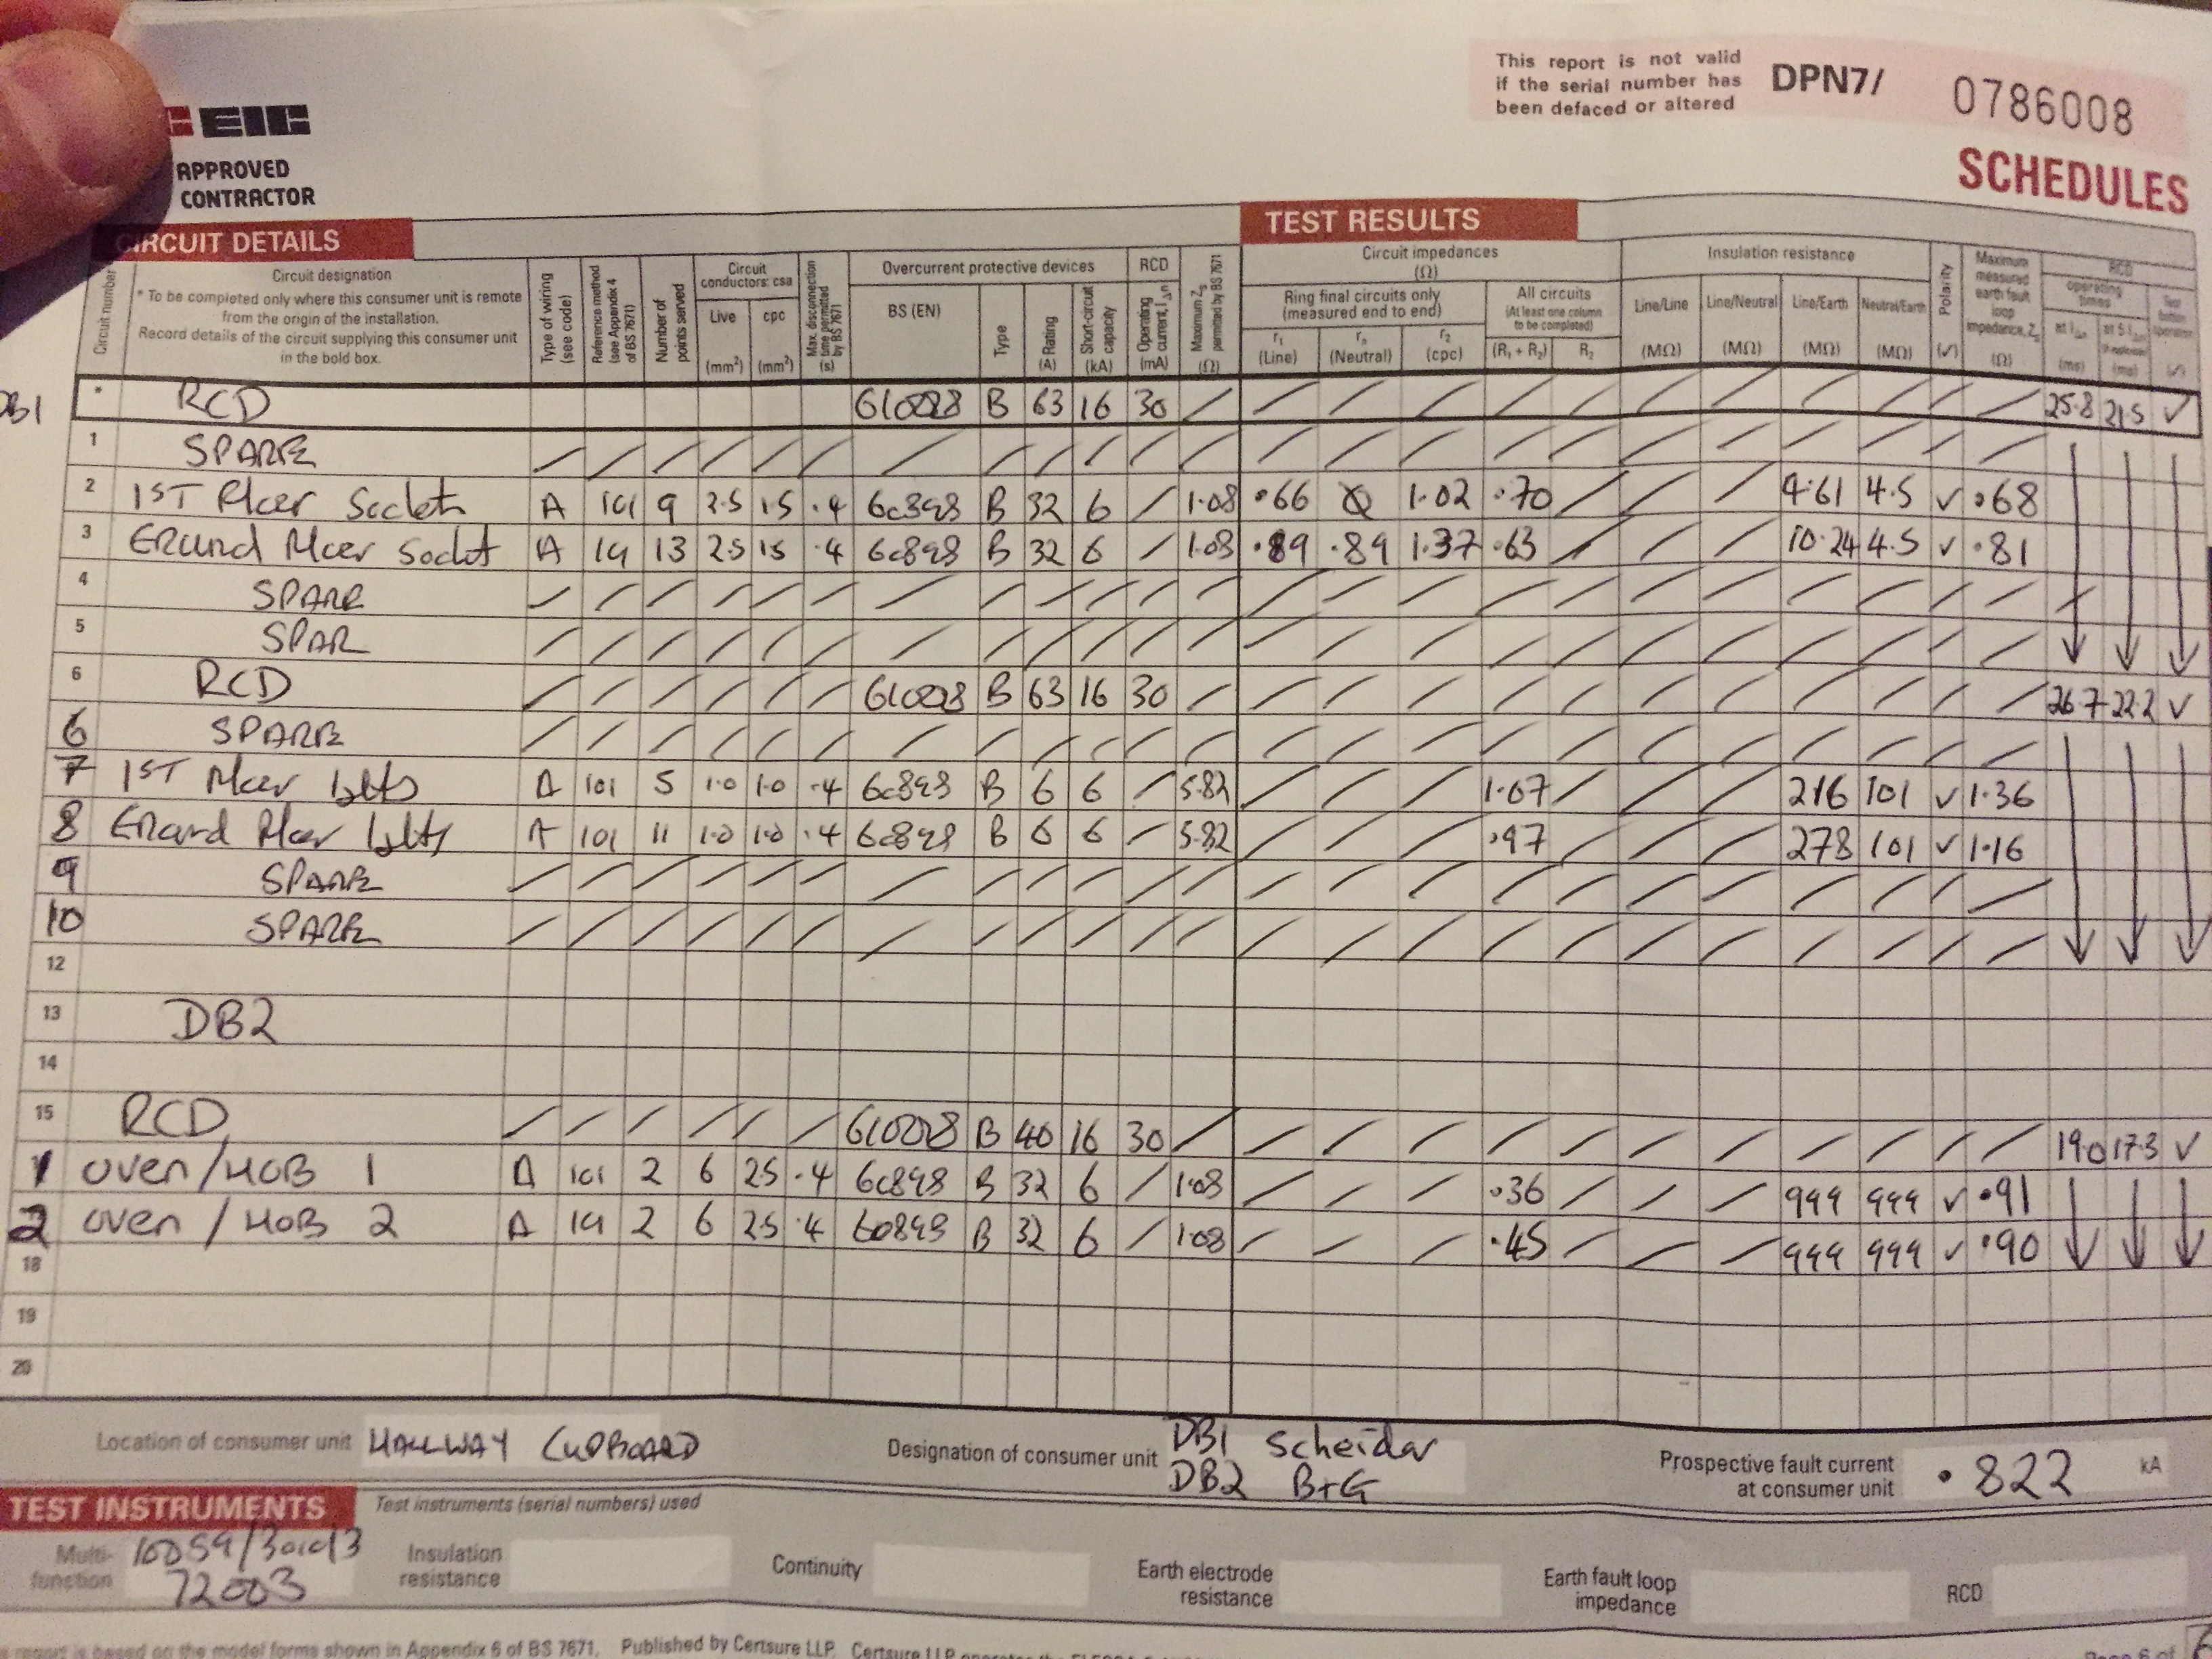 This report is not valid
if the serial number has
been defaced or altered
DPN7/ 0786008
EIC
APPROVED
CONTRACTOR
SCHEDULES
CIRCUIT DETAILS
TEST RESULTS
Circuit number
Circuit designation
* To be completed only where this consumer unit is remote
from the origin of the installation.
Record details of the circuit supplying this consumer unit
in the bold box.
Type of wiring (see code)
Reference method (see Appendix 4 of BS 7671)
Number of points served
Circuit conductors: csa
Live (mm²)
cpc (mm²)
Max. disconnection time permitted by BS 7671 (s)
Overcurrent protective devices
BS (EN)
Type
Rating (A)
Short-circuit capacity (kA)
RCD
Operating current, IΔn (mA)
Maximum Zs permitted by BS 7671 (Ω)
Circuit impedances (Ω)
Ring final circuits only
(measured end to end)
r1 (Line)
rn (Neutral)
r2 (cpc)
All circuits
(At least one column
to be completed)
(R1 + R2)
R2
Insulation resistance
Line/Line (MΩ)
Line/Neutral (MΩ)
Line/Earth (MΩ)
Neutral/Earth (MΩ)
Polarity (✓)
Maximum measured earth fault loop impedance, Zs (Ω)
RCD
operating times
at IΔn (ms)
at 5 IΔn (ms)
Test button operation (✓)
DB1 * RCD 61008 B 63 16 30 / / / / / / / / / / / / 25.8 21.5 ✓
1 SPARE / / / / / / / / / / / / / / / / / / / / / / /
2 1ST Floor Sockets A 101 9 2.5 1.5 .4 60898 B 32 6 / 1.08 .66 1.02 .70 / / / 4.61 4.5 ✓ .68
3 Ground Floor Socket A 101 13 2.5 1.5 .4 60898 B 32 6 / 1.08 .89 .89 1.37 .63 / / / 10.24 4.5 ✓ .81
4 SPARE / / / / / / / / / / / / / / / / / / / / / / / /
5 SPAR / / / / / / / / / / / / / / / / / / / / / / /
6 RCD / / / / / / 61008 B 63 16 30 / / / / / / / / / / / / 26.7 22.2 ✓
6 SPARE / / / / / / / / / / / / / / / / / / / / / / /
7 1ST Floor lghts A 101 5 1.0 1.0 .4 60898 B 6 6 / 5.82 / / / 1.07 / / / 216 101 ✓ 1.36
8 Ground Floor lghts A 101 11 1.0 1.0 .4 60898 B 6 6 / 5.82 / / / .97 / / / 278 101 ✓ 1.16
9 SPARE / / / / / / / / / / / / / / / / / / / / / / /
10 SPARE / / / / / / / / / / / / / / / / / / / / / / /
12
13 DB2
14
15 RCD / / / / / / 61008 B 40 16 30 / / / / / / / / / / / / 19.0 17.3 ✓
1 oven/HOB 1 A 101 2 6 2.5 .4 60898 B 32 6 / 1.08 / / / .36 / / / 999 999 ✓ .91
2 oven / HOB 2 A 101 2 6 2.5 .4 60898 B 32 6 / 1.08 / / / .45 / / / 999 999 ✓ .90
18
19
20
Location of consumer unit HALLWAY CUPBOARD
Designation of consumer unit DB1 Scheider
DB2 B+G
Prospective fault current
at consumer unit .822 kA
TEST INSTRUMENTS
Test instruments (serial numbers) used
Multi-
function
72003
Insulation
resistance
Continuity
Earth electrode
resistance
Earth fault loop
impedance
RCD
report is based on the model forms shown in Appendix 6 of BS 7671. Published by Certsure LLP. Certsure LLP
Page 6 of